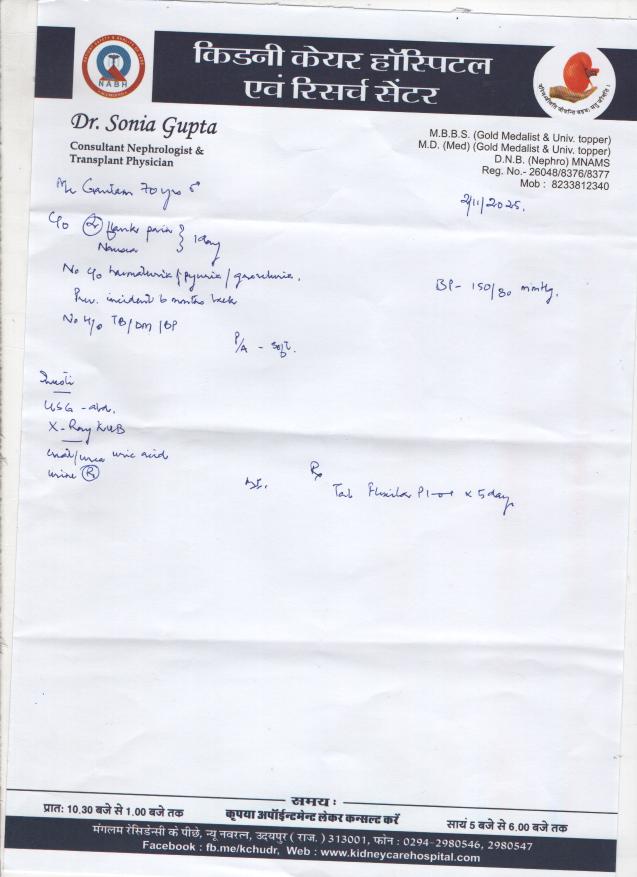 NABH
किडनी केयर हॉस्पिटल
एवं रिसर्च सेंटर
Dr. Sonia Gupta
Consultant Nephrologist &
Transplant Physician
M.B.B.S. (Gold Medalist & Univ. topper)
M.D. (Med) (Gold Medalist & Univ. topper)
D.N.B. (Nephro) MNAMS
Reg. No.- 26048/8376/8377
Mob : 8233812340
Mr Gautam 70 yrs
2/11/2025.
C/o Flank pain
Nausea } 1 day
No c/o haematuria / pyuria /
BP- 150/80 mmHg.
Prev. incident 6 months back
No H/o TB/DM/BP
P/A - soft.
USG - abd.
X-Ray KUB
urea uric acid
urine (R)
Rx
Tab P 1-0-1 x 5 day
समय:
प्रात: 10.30 बजे से 1.00 बजे तक
कृपया अपॉईन्टमेन्ट लेकर कन्सल्ट करें
सायं 5 बजे से 6.00 बजे तक
मंगलम रेसिडेन्सी के पीछे, न्यू नवरत्न, उदयपुर ( राज. ) 313001, फोन : 0294-2980546, 2980547
Facebook : fb.me/kchudr, Web : www.kidneycarehospital.com